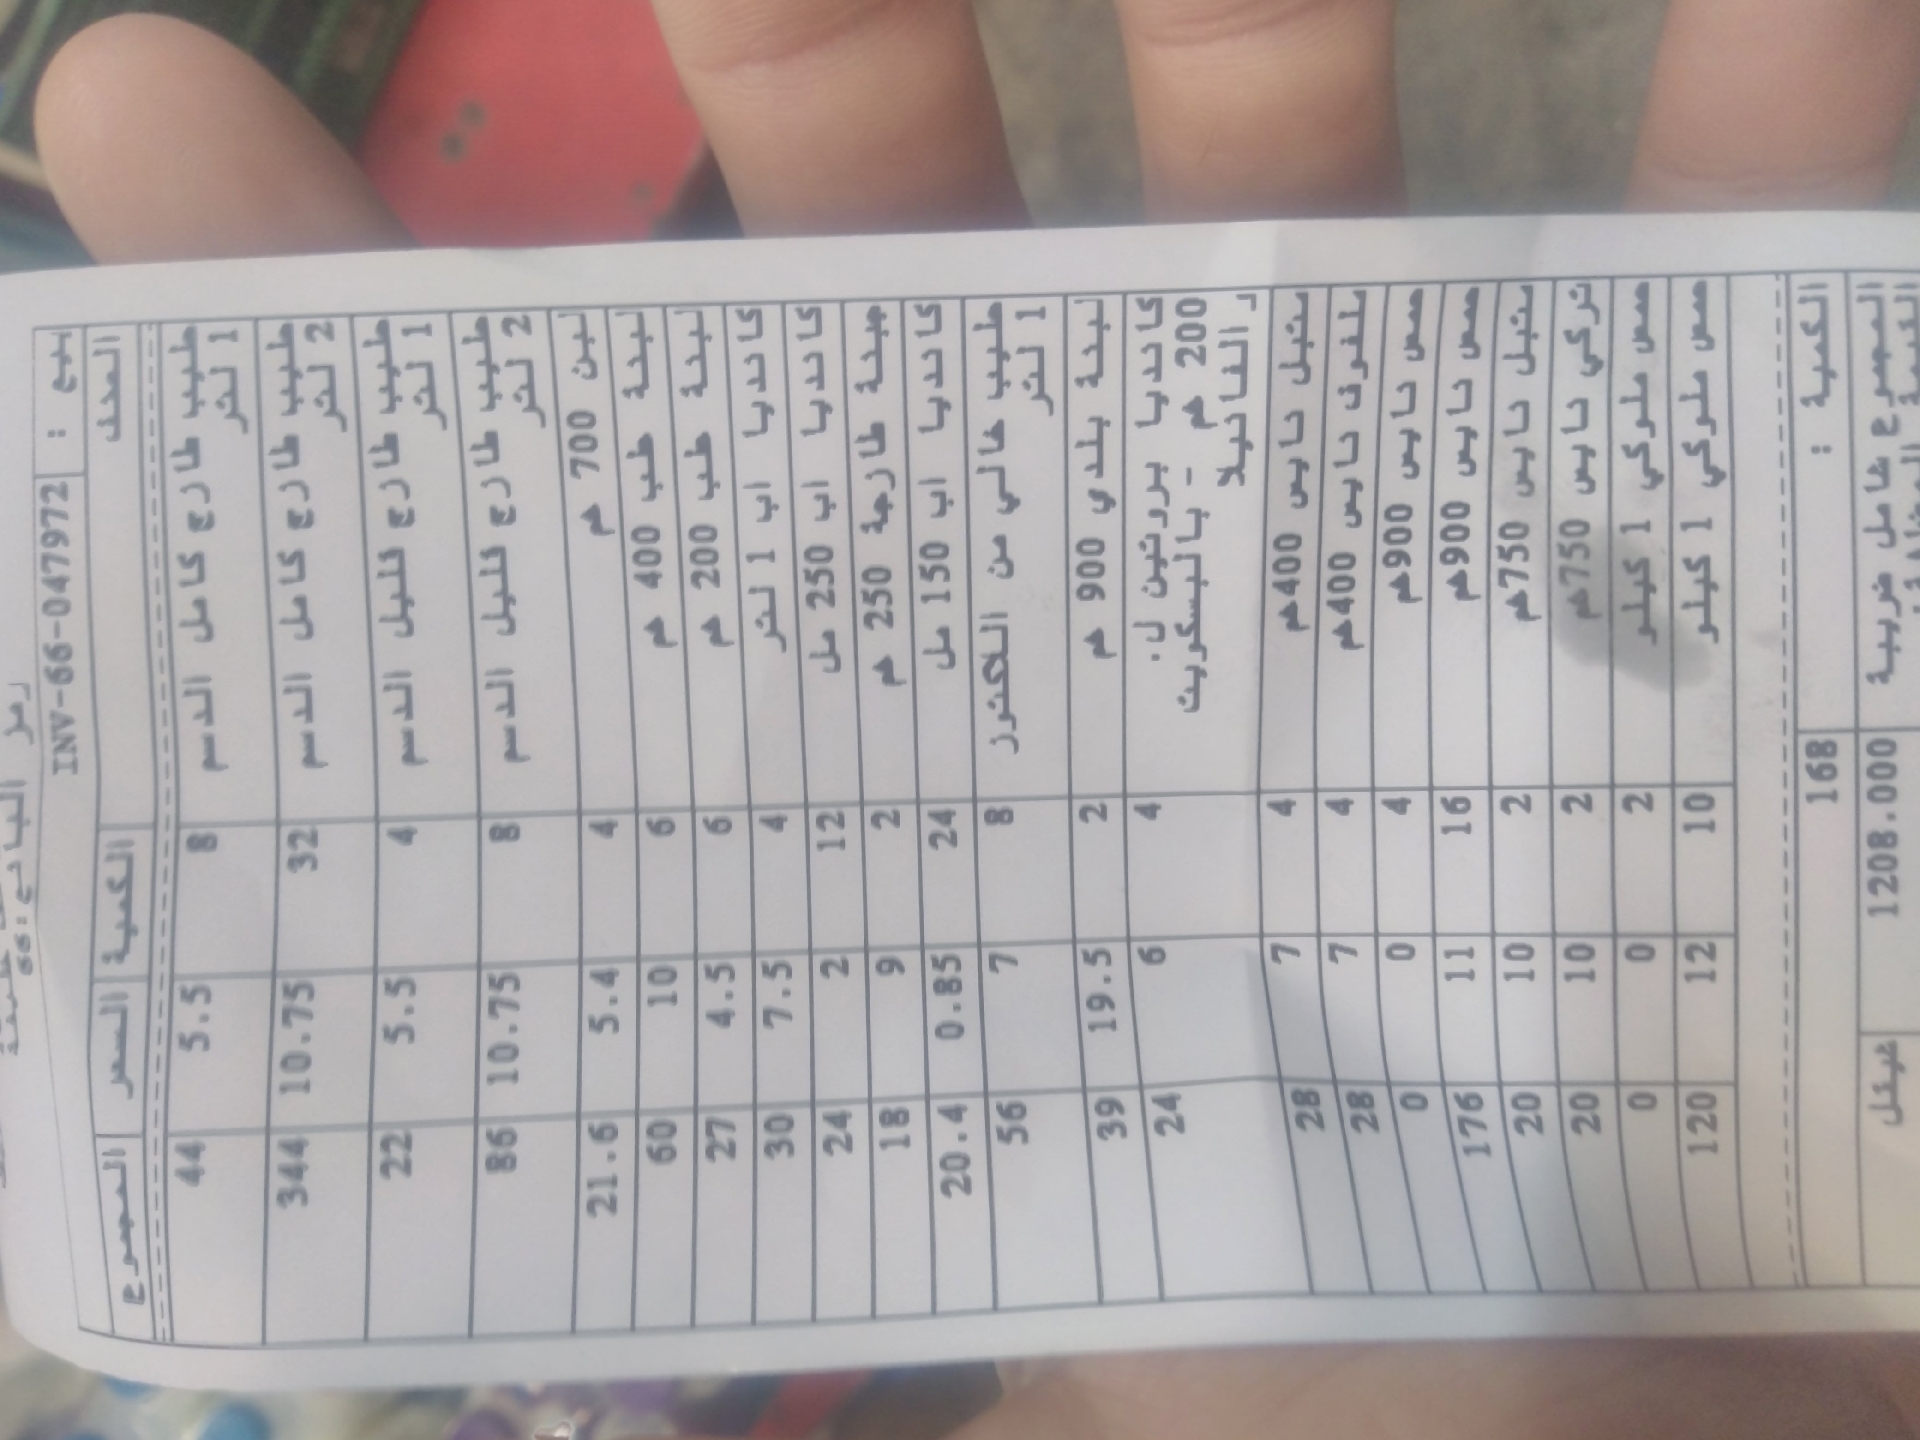 رمز البائع: 66
بيع : INV-66-047972
العدد الكمية السعر المجموع
حليب طازج كامل الدسم 8 5.5 44
1 لتر
حليب طازج كامل الدسم 32 10.75 344
2 لتر
حليب طازج قليل الدسم 4 5.5 22
1 لتر
حليب طازج قليل الدسم 8 10.75 86
2 لتر
لبن 700 غم 4 5.4 21.6
لبنة علب 400 غم 6 10 60
لبنة علب 200 غم 6 4.5 27
كانديا اب 1 لتر 4 7.5 30
كانديا اب 250 مل 12 2 24
جبنة طازجة 250 غم 2 9 18
كانديا اب 150 مل 24 0.85 20.4
حليب خالي من اللكتوز 8 7 56
1 لتر
لبنة بلدي 900 غم 2 19.5 39
كانديا بروتين ل. 4 6 24
200 غم - بالبسكويت
و الفانيلا
متبل نايس 400غم 4 7 28
ملفوف نايس 400غم 4 7 28
حمص نايس 900غم 4 0 0
حمص نايس 900غم 16 11 176
متبل نايس 750غم 2 10 20
تركي نايس 750غم 2 10 20
حمص ملوكي 1 كيلو 2 0 0
حمص ملوكي 1 كيلو 10 12 120
الكمية : 168
المجموع شامل ضريبة 1208.000 شيكل